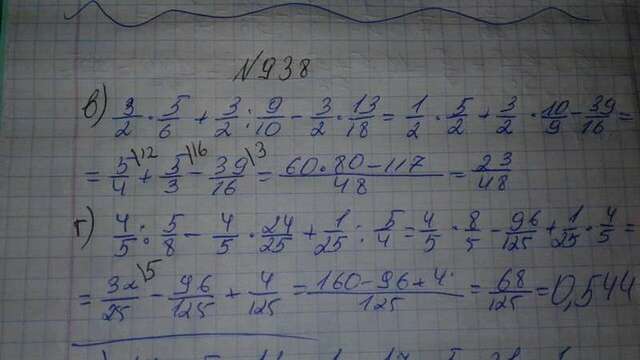 N938
в) 3/2 · 5/6 + 3/2 : 9/10 - 3/2 · 13/18 = 1/2 · 5/2 + 3/2 · 10/9 - 39/16 =
= 5/4 \12 + 5/3 \16 - 39/16 \3 = 60·80-117/48 = 23/48
г) 4/5 : 5/8 - 4/5 · 24/25 + 1/25 : 5/4 = 4/5 · 8/5 - 96/125 + 1/25 · 4/5 =
= 32/25 \5 - 96/125 + 4/125 = 160-96+4/125 = 68/125 = 0,544